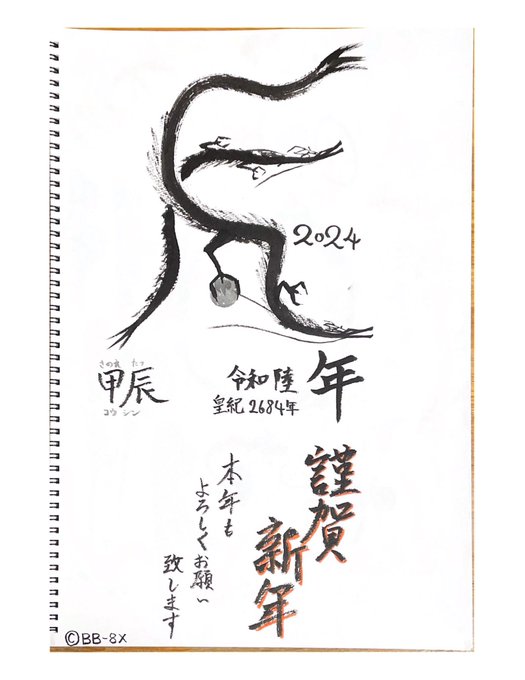 辰
2024
年
令和陸
皇紀2684年
きのえ たつ
甲辰
コウ シン
謹賀
新年
本年も
よろしくお願い
致します
©BB-8X